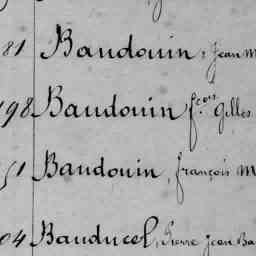 81 Baudouin, Jean M
198 Baudouin f.cois Gilles
51 Baudouin, françois M
04 Bauducel, Pierre Jean Ba